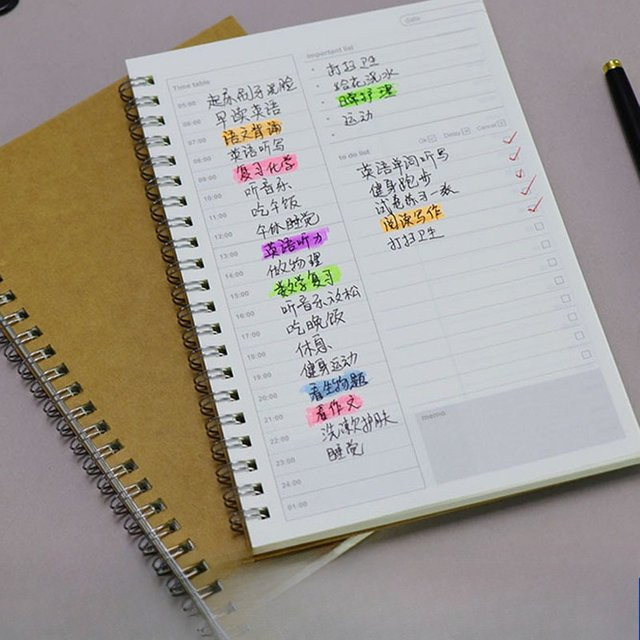 Date:
Time table
05:00
起床刷牙洗脸
06:00
早读英语
07:00
语文背诵
08:00
英语听写
09:00
复习化学
10:00
听音乐
11:00
吃午饭
12:00
午休睡觉
13:00
英语听力
14:00
做物理
15:00
数学复习
听音乐放松
17:00
吃晚饭
18:00
休息
19:00
健身运动
20:00
看生物题
21:00
看作文
22:00
洗漱护肤
23:00
睡觉
24:00
01:00
Important list
打扫卫生
给花浇水
运动
to do list
Ok
Delay
Cancel
英语单词听写
健身跑步
试卷练习一套
阅读写作
打扫卫生
memo